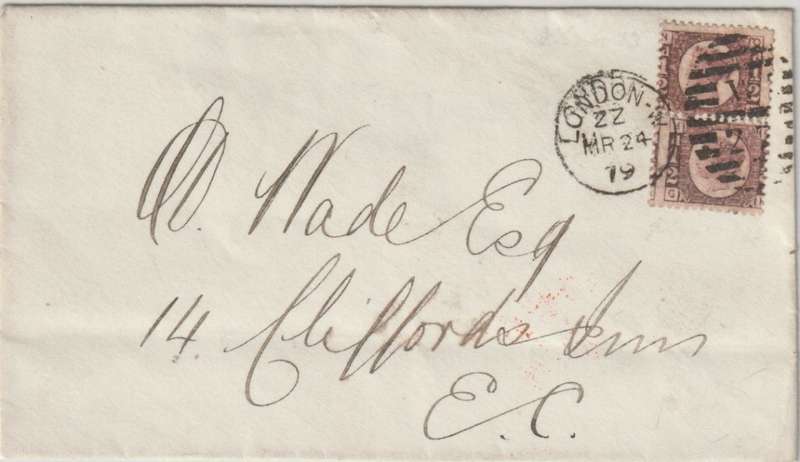 LONDON-W
ZZ
MR 24
79
W. Wade Esq
14. Cliffords Inn
E.C.